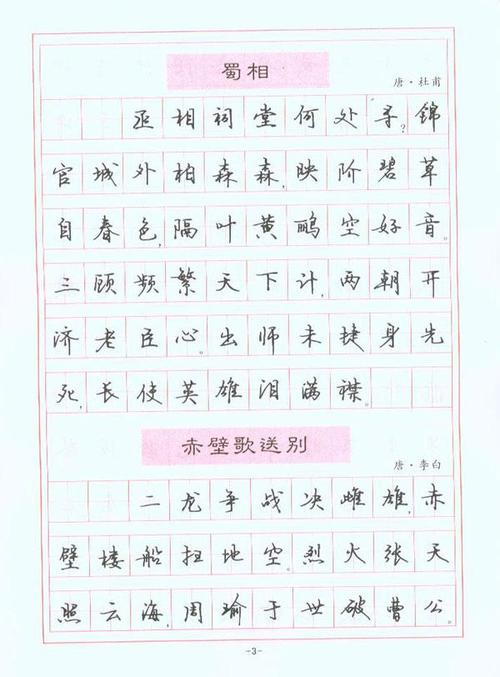 蜀相
唐·杜甫
丞相祠堂何处寻?锦
官城外柏森森,映阶碧草
自春色,隔叶黄鹂空好音。
三顾频繁天下计,两朝开
济老臣心。出师未捷身先
死,长使英雄泪满襟。
赤壁歌送别
唐·李白
二龙争战决雌雄,赤
壁楼船扫地空。烈火张天
照云海,周瑜于世破曹公。
-3-